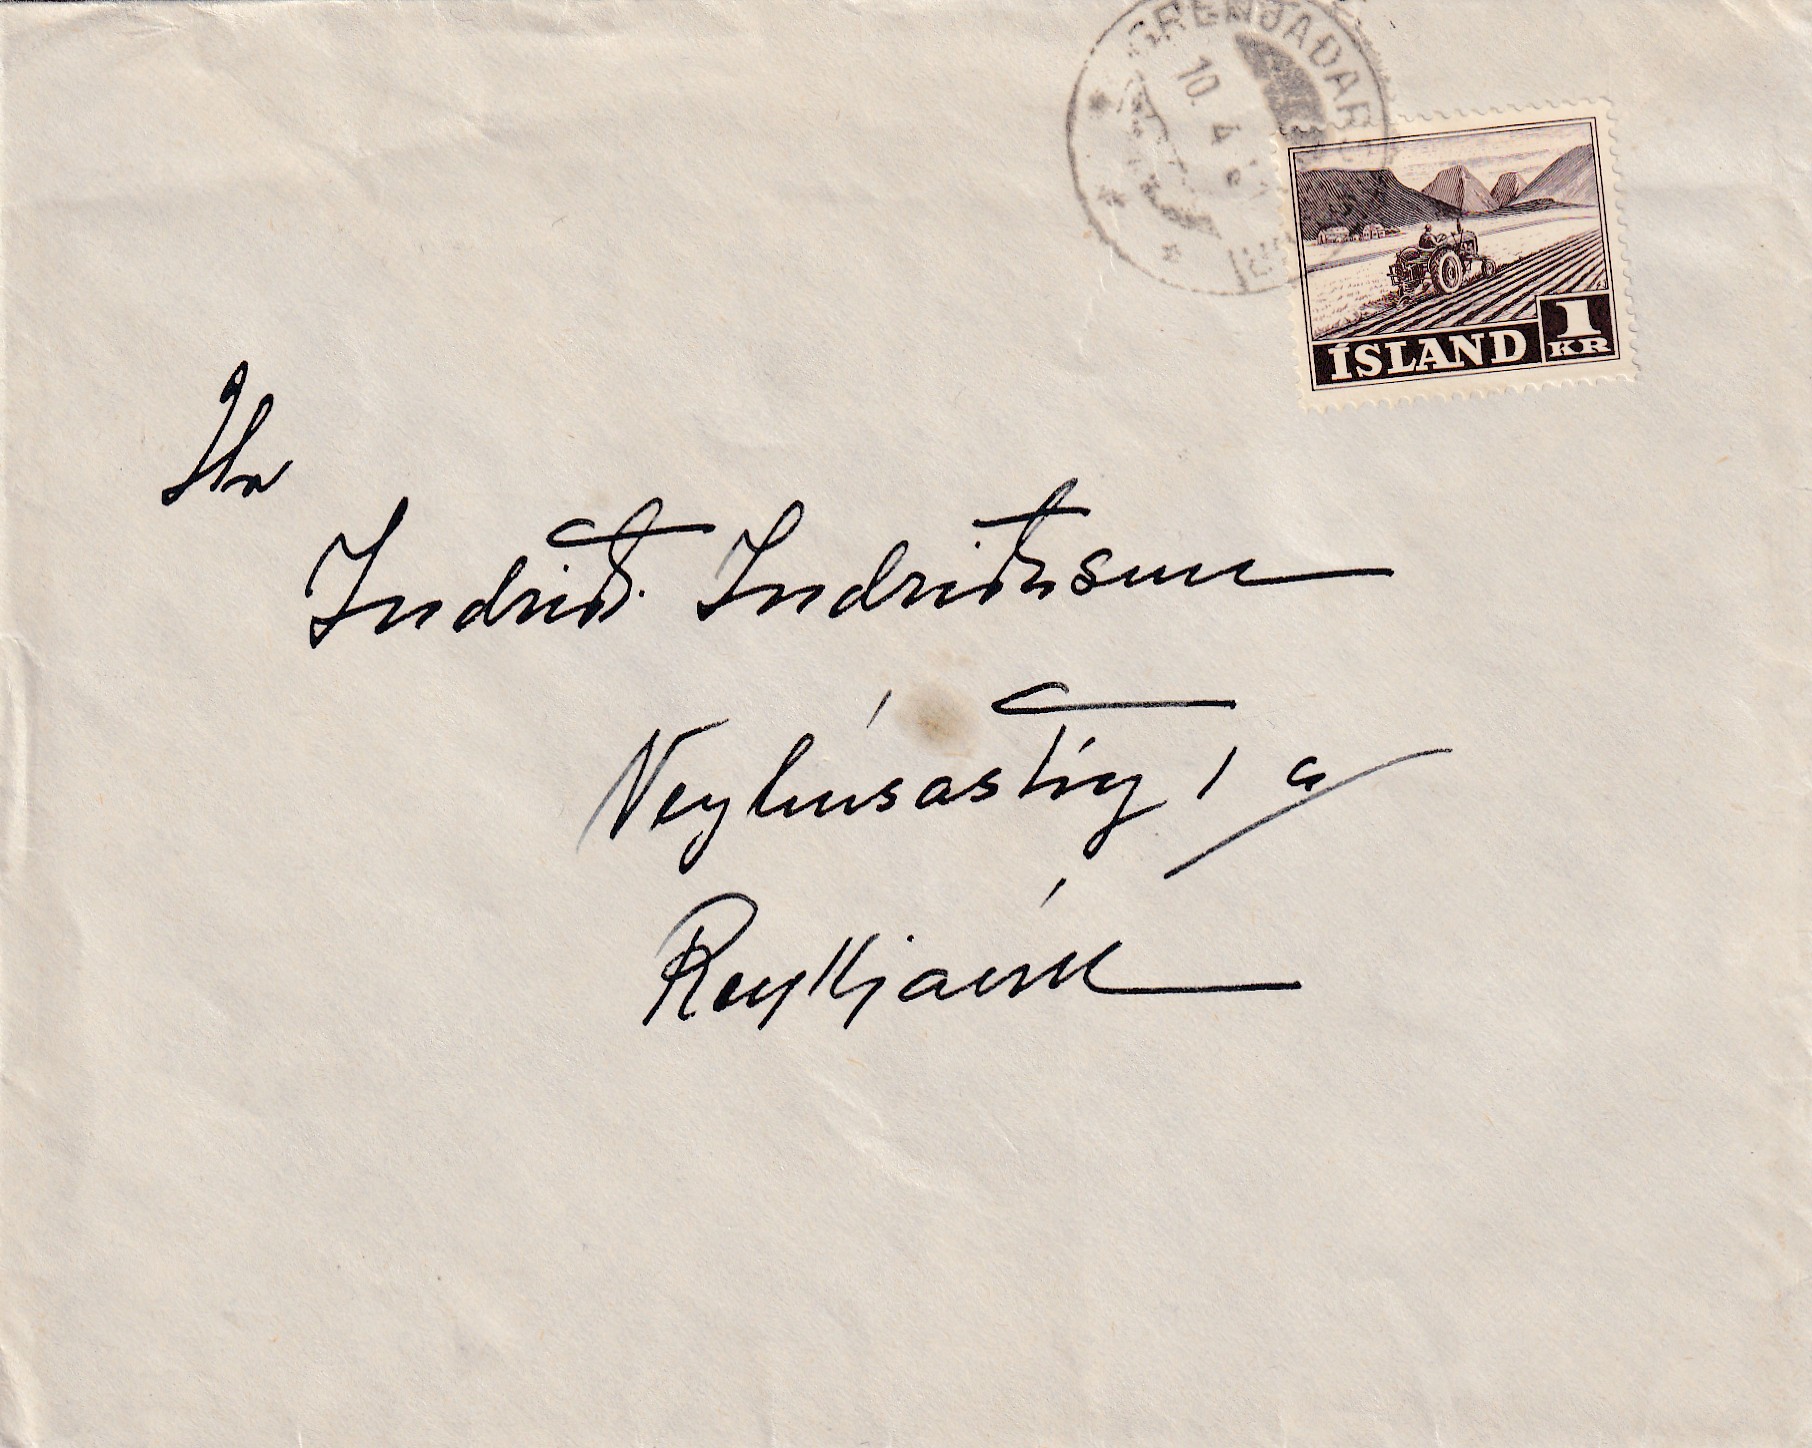 GRENJAÐAR
10. 4
ÍSLAND 1 KR
Hr
Indriði Indriðason
Neyhúsastíg 1 a
Reykjavík